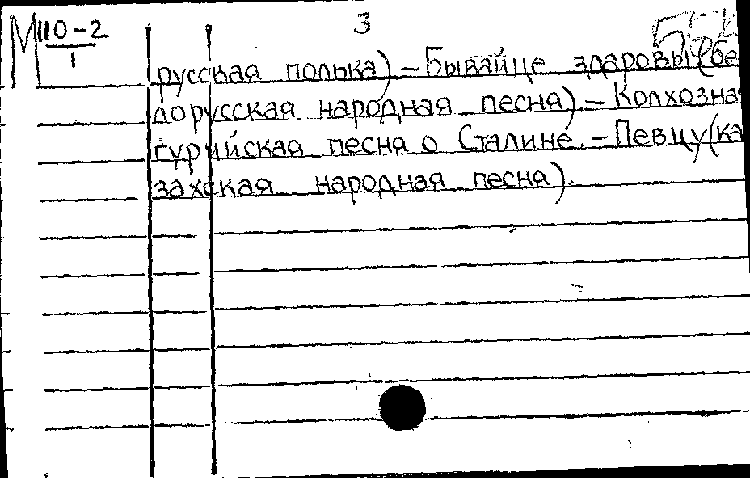 М 110-2
1
3
русская полька) – Бывайце здаровы (бе
лорусская народная песня) – Колхозная
гурийская песня о Сталине. – Певцу (ка
захская народная песня).